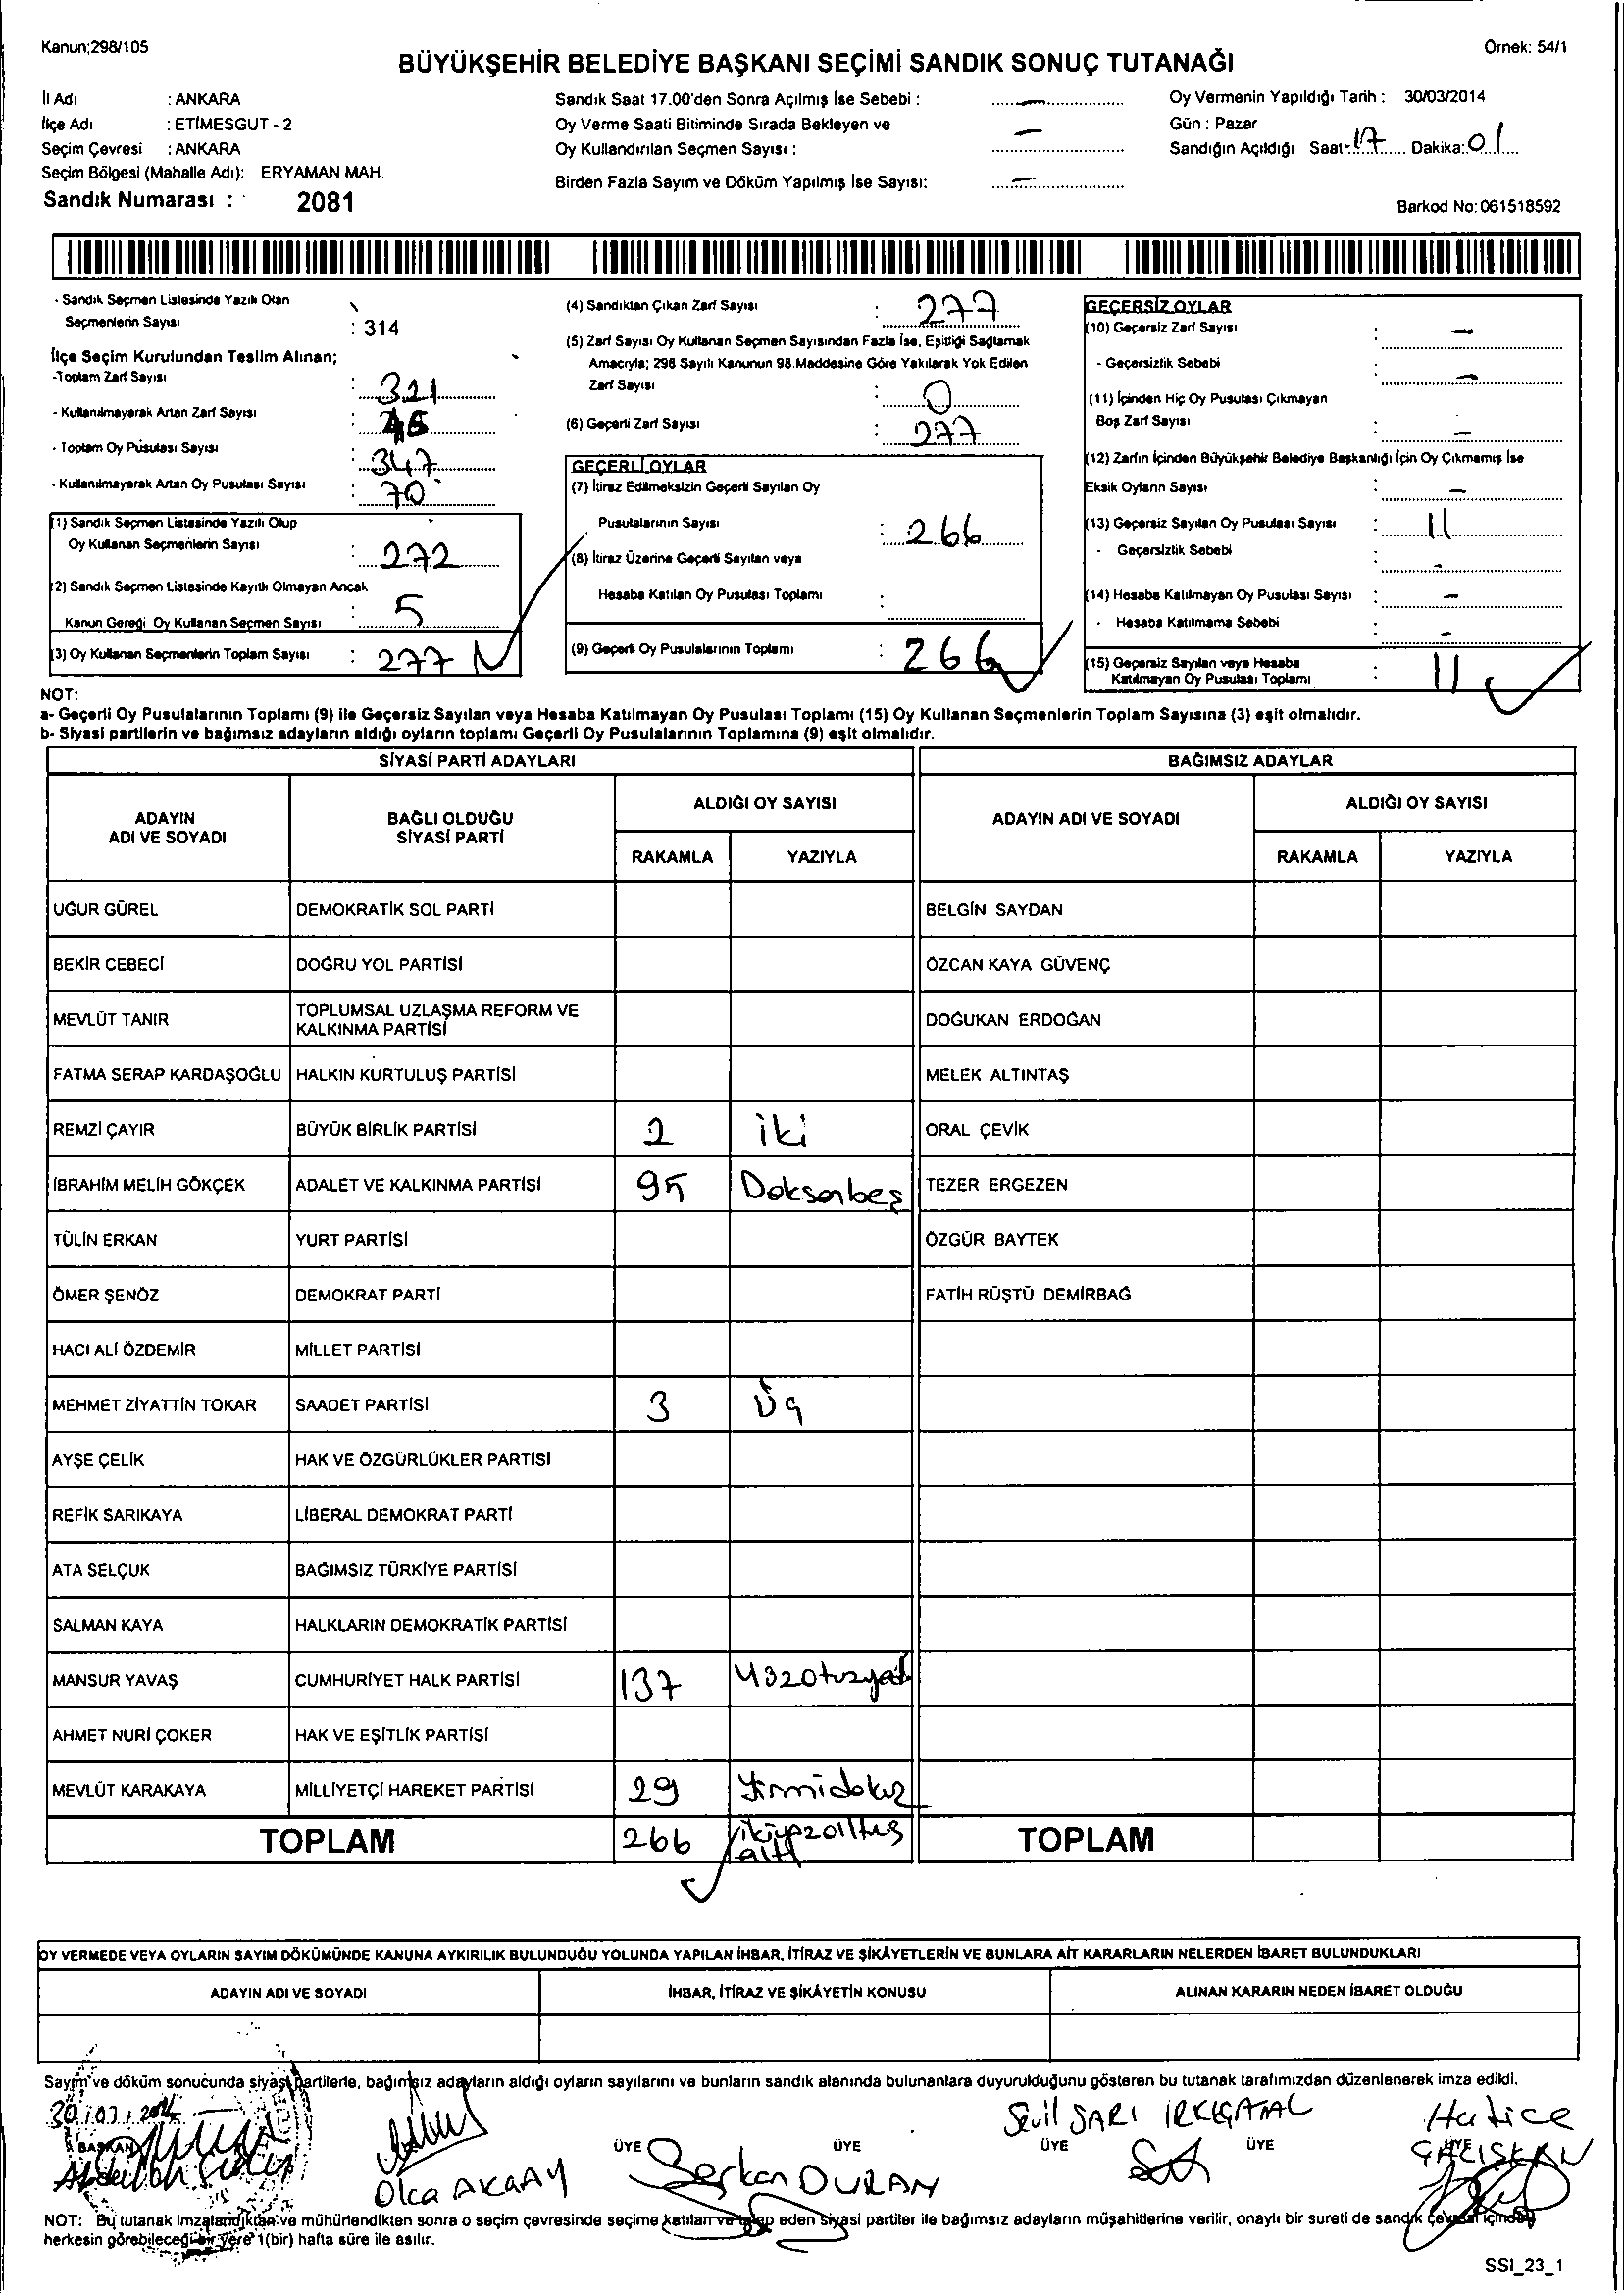 Kanun;298/105
Örnek: 54/1
BÜYÜKŞEHİR BELEDİYE BAŞKANI SEÇİMİ SANDIK SONUÇ TUTANAĞI
İl Adı : ANKARA
İlçe Adı : ETİMESGUT - 2
Seçim Çevresi : ANKARA
Seçim Bölgesi (Mahalle Adı): ERYAMAN MAH.
Sandık Numarası : 2081
Sandık Saat 17.00'den Sonra Açılmış İse Sebebi : –
Oy Verme Saati Bitiminde Sırada Bekleyen ve
Oy Kullandırılan Seçmen Sayısı : –
Birden Fazla Sayım ve Döküm Yapılmış İse Sayısı: –
Oy Vermenin Yapıldığı Tarih : 30/03/2014
Gün : Pazar
Sandığın Açıldığı Saat: 17 Dakika: 01
Barkod No: 061518592
- Sandık Seçmen Listesinde Yazılı Olan
Seçmenlerin Sayısı : 314
İlçe Seçim Kurulundan Teslim Alınan;
-Toplam Zarf Sayısı : 321
- Kullanılmayarak Artan Zarf Sayısı :
- Toplam Oy Pusulası Sayısı : 347
- Kullanılmayarak Artan Oy Pusulası Sayısı : 70
(1) Sandık Seçmen Listesinde Yazılı Olup
Oy Kullanan Seçmenlerin Sayısı : 272
(2) Sandık Seçmen Listesinde Kayıtlı Olmayan Ancak
Kanun Gereği Oy Kullanan Seçmen Sayısı : 5
(3) Oy Kullanan Seçmenlerin Toplam Sayısı : 277
(4) Sandıktan Çıkan Zarf Sayısı : 277
(5) Zarf Sayısı Oy Kullanan Seçmen Sayısından Fazla İse, Eşitliği Sağlamak
Amacıyla; 298 Sayılı Kanunun 98.Maddesine Göre Yakılarak Yok Edilen
Zarf Sayısı : 0
(6) Geçerli Zarf Sayısı : 277
GEÇERLİ OYLAR
(7) İtiraz Edilmeksizin Geçerli Sayılan Oy
Pusulalarının Sayısı : 266
(8) İtiraz Üzerine Geçerli Sayılan veya
Hesaba Katılan Oy Pusulası Toplamı :
(9) Geçerli Oy Pusulalarının Toplamı : 266
GEÇERSİZ OYLAR
(10) Geçersiz Zarf Sayısı : –
- Geçersizlik Sebebi : –
(11) İçinden Hiç Oy Pusulası Çıkmayan
Boş Zarf Sayısı : –
(12) Zarfın İçinden Büyükşehir Belediye Başkanlığı İçin Oy Çıkmamış İse
Eksik Oyların Sayısı : –
(13) Geçersiz Sayılan Oy Pusulası Sayısı : 11
- Geçersizlik Sebebi : -
(14) Hesaba Katılmayan Oy Pusulası Sayısı : –
- Hesaba Katılmama Sebebi : -
(15) Geçersiz Sayılan veya Hesaba
Katılmayan Oy Pusulası Toplamı : 11
NOT:
a- Geçerli Oy Pusulalarının Toplamı (9) ile Geçersiz Sayılan veya Hesaba Katılmayan Oy Pusulası Toplamı (15) Oy Kullanan Seçmenlerin Toplam Sayısına (3) eşit olmalıdır.
b- Siyasi partilerin ve bağımsız adayların aldığı oyların toplamı Geçerli Oy Pusulalarının Toplamına (9) eşit olmalıdır.
SİYASİ PARTİ ADAYLARI BAĞIMSIZ ADAYLAR
ADAYIN ADI VE SOYADI BAĞLI OLDUĞU SİYASİ PARTİ ALDIĞI OY SAYISI ADAYIN ADI VE SOYADI ALDIĞI OY SAYISI
RAKAMLA YAZIYLA RAKAMLA YAZIYLA
UĞUR GÜREL DEMOKRATİK SOL PARTİ BELGİN SAYDAN
BEKİR CEBECİ DOĞRU YOL PARTİSİ ÖZCAN KAYA GÜVENÇ
MEVLÜT TANIR TOPLUMSAL UZLAŞMA REFORM VE KALKINMA PARTİSİ DOĞUKAN ERDOĞAN
FATMA SERAP KARDAŞOĞLU HALKIN KURTULUŞ PARTİSİ MELEK ALTINTAŞ
REMZİ ÇAYIR BÜYÜK BİRLİK PARTİSİ 2 iki ORAL ÇEVİK
İBRAHİM MELİH GÖKÇEK ADALET VE KALKINMA PARTİSİ 95 Doksanbeş TEZER ERGEZEN
TÜLİN ERKAN YURT PARTİSİ ÖZGÜR BAYTEK
ÖMER ŞENÖZ DEMOKRAT PARTİ FATİH RÜŞTÜ DEMİRBAĞ
HACI ALİ ÖZDEMİR MİLLET PARTİSİ
MEHMET ZİYATTİN TOKAR SAADET PARTİSİ 3 Üç
AYŞE ÇELİK HAK VE ÖZGÜRLÜKLER PARTİSİ
REFİK SARIKAYA LİBERAL DEMOKRAT PARTİ
ATA SELÇUK BAĞIMSIZ TÜRKİYE PARTİSİ
SALMAN KAYA HALKLARIN DEMOKRATİK PARTİSİ
MANSUR YAVAŞ CUMHURİYET HALK PARTİSİ 137
AHMET NURİ ÇOKER HAK VE EŞİTLİK PARTİSİ
MEVLÜT KARAKAYA MİLLİYETÇİ HAREKET PARTİSİ 29 Yirmidokuz
TOPLAM 266 TOPLAM
OY VERMEDE VEYA OYLARIN SAYIM DÖKÜMÜNDE KANUNA AYKIRILIK BULUNDUĞU YOLUNDA YAPILAN İHBAR, İTİRAZ VE ŞİKÂYETLERİN VE BUNLARA AİT KARARLARIN NELERDEN İBARET BULUNDUKLARI
ADAYIN ADI VE SOYADI İHBAR, İTİRAZ VE ŞİKÂYETİN KONUSU ALINAN KARARIN NEDEN İBARET OLDUĞU
Sayım ve döküm sonucunda siyasi partilerle, bağımsız adayların aldığı oyların sayılarını ve bunların sandık alanında bulunanlara duyurulduğunu gösteren bu tutanak tarafımızdan düzenlenerek imza edildi.
30/03/2014 Sevil SARI Hatice
BAŞKAN ÜYE ÜYE ÜYE ÜYE ÜYE ÇALIŞKAN
Olca AKAAY Serkan DURAN
NOT: Bu tutanak imzalandıktan ve mühürlendikten sonra o seçim çevresinde seçime katılan ve talep eden siyasi partiler ile bağımsız adayların müşahitlerine verilir, onaylı bir sureti de sandık çevresi içinde
herkesin görebileceği bir yere 1(bir) hafta süre ile asılır.
SSI_23_1